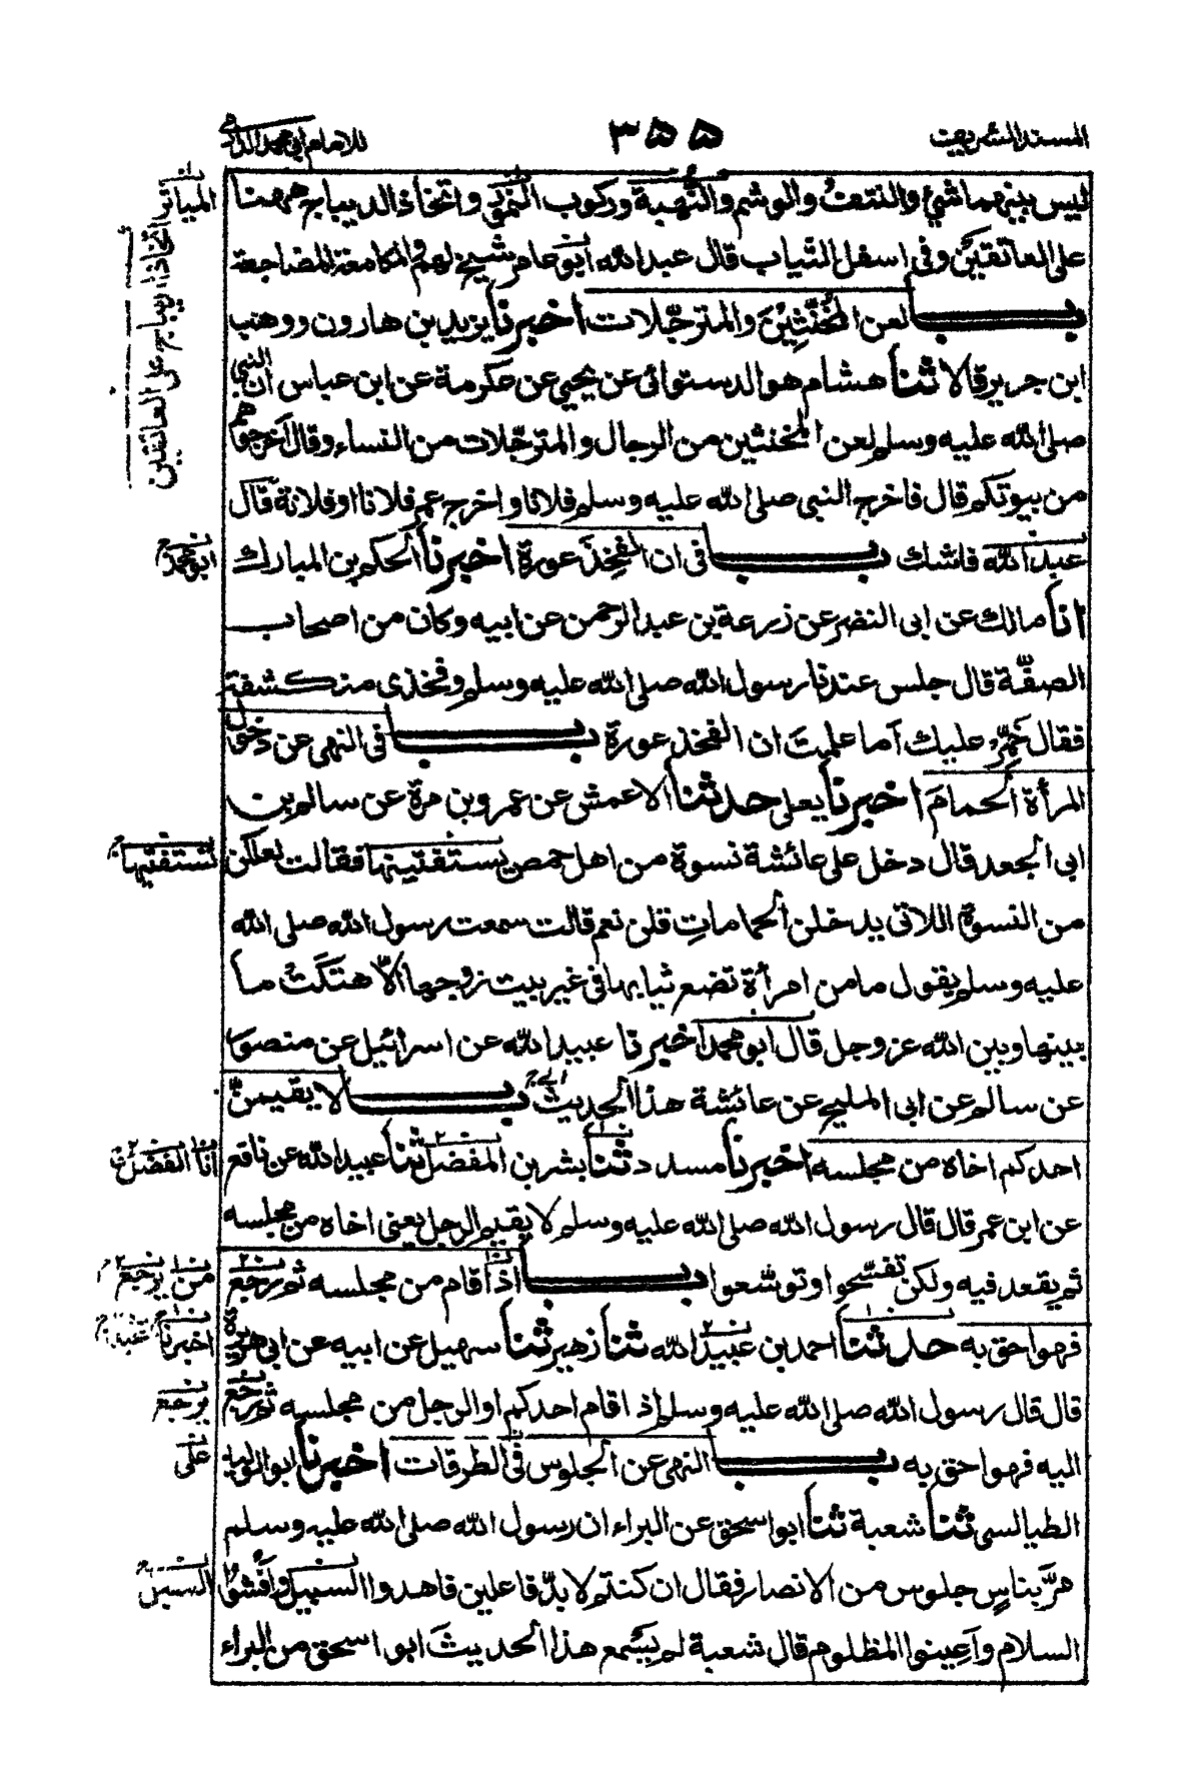 المسند الشريف ٣٥٥ للامام ابي محمد الدارمي
ليس بينهما شئ والنتف والوشم والنهبة وركوب النمور واتخاذ الديباج ههنا
على العاتقين وفى اسفل الثياب قال عبد الله ابو عامر شيخ لهم والمكامعة المضاجعة
باب لعن المخنثين والمترجلات اخبرنا يزيد بن هارون ووهب
ابن جرير قالا ثنا هشام هو الدستوائى عن يحيى عن عكرمة عن ابن عباس ان النبي
صلى الله عليه وسلم لعن المخنثين من الرجال والمترجلات من النساء وقال اخرجوهم
من بيوتكم قال فاخرج النبى صلى الله عليه وسلم فلانا واخرج عمر فلانا او فلانة قال
عبد الله فاشك باب فى ان الفخذ عورة اخبرنا الحكم بن المبارك
انا مالك عن ابى النضر عن زرعة بن عبد الرحمن عن ابيه وكان من اصحاب
الصفّة قال جلس عندنا رسول الله صلى الله عليه وسلم وفخذى منكشفة
فقال خمّر عليك أما علمت ان الفخذ عورة باب فى النهى عن دخول
المرأة الحمام اخبرنا يعلى حدثنا الاعمش عن عمرو بن مرة عن سالم بن
ابى الجعد قال دخل على عائشة نسوة من اهل حمص يستفتينها فقالت لعلكن
من النسوة اللاتى يدخلن الحمامات قلن نعم قالت سمعت رسول الله صلى الله
عليه وسلم يقول ما من امرأة تضع ثيابها فى غير بيت زوجها الّا هتكت ما
بينها وبين الله عز وجل قال ابو محمد اخبرنا عبيد الله عن اسرائيل عن منصور
عن سالم عن ابى المليح عن عائشة هذا الحديث باب لا يقيمنّ
احدكم اخاه من مجلسه اخبرنا مسدد ثنا بشر بن المفضل ثنا عبيد الله عن نافع
عن ابن عمر قال قال رسول الله صلى الله عليه وسلم لا يقيم الرجل يعنى اخاه من مجلسه
ثم يقعد فيه ولكن تفسّحوا او توسّعوا باب اذا قام من مجلسه ثم رجع
فهو احق به حدثنا احمد بن عبيد الله ثنا زهير ثنا سهيل عن ابيه عن ابى هريرة
قال قال رسول الله صلى الله عليه وسلم إذا قام احدكم او الرجل من مجلسه ثم رجع
اليه فهو احق به باب النهى عن الجلوس فى الطرقات اخبرنا ابو الوليد
الطيالسى ثنا شعبة ثنا ابو اسحق عن البراء ان رسول الله صلى الله عليه وسلم
مرّ بناس جلوس من الانصار فقال ان كنتم لا بدّ فاعلين فاهدوا السبيل وأفشوا
السلام وأعينوا المظلوم قال شعبة لم يسمع هذا الحديث ابو اسحق من البراء
المياثر
اتخاذ الديباج على العاتقين
ابو محمد
تستفتيها
انا الفضل
من يرجع
اخبرنا
يرجع
على
السبيل